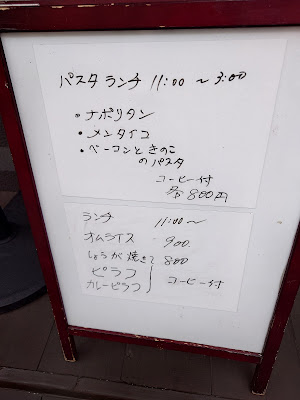 パスタ ランチ 11:00 〜 3:00
・ナポリタン
・メンタイコ
・ベーコンときのこ
のパスタ
コーヒー付
800円
ランチ 11:00〜
オムライス 900
しょうが焼き 800
ピラフ
カレーピラフ コーヒー付